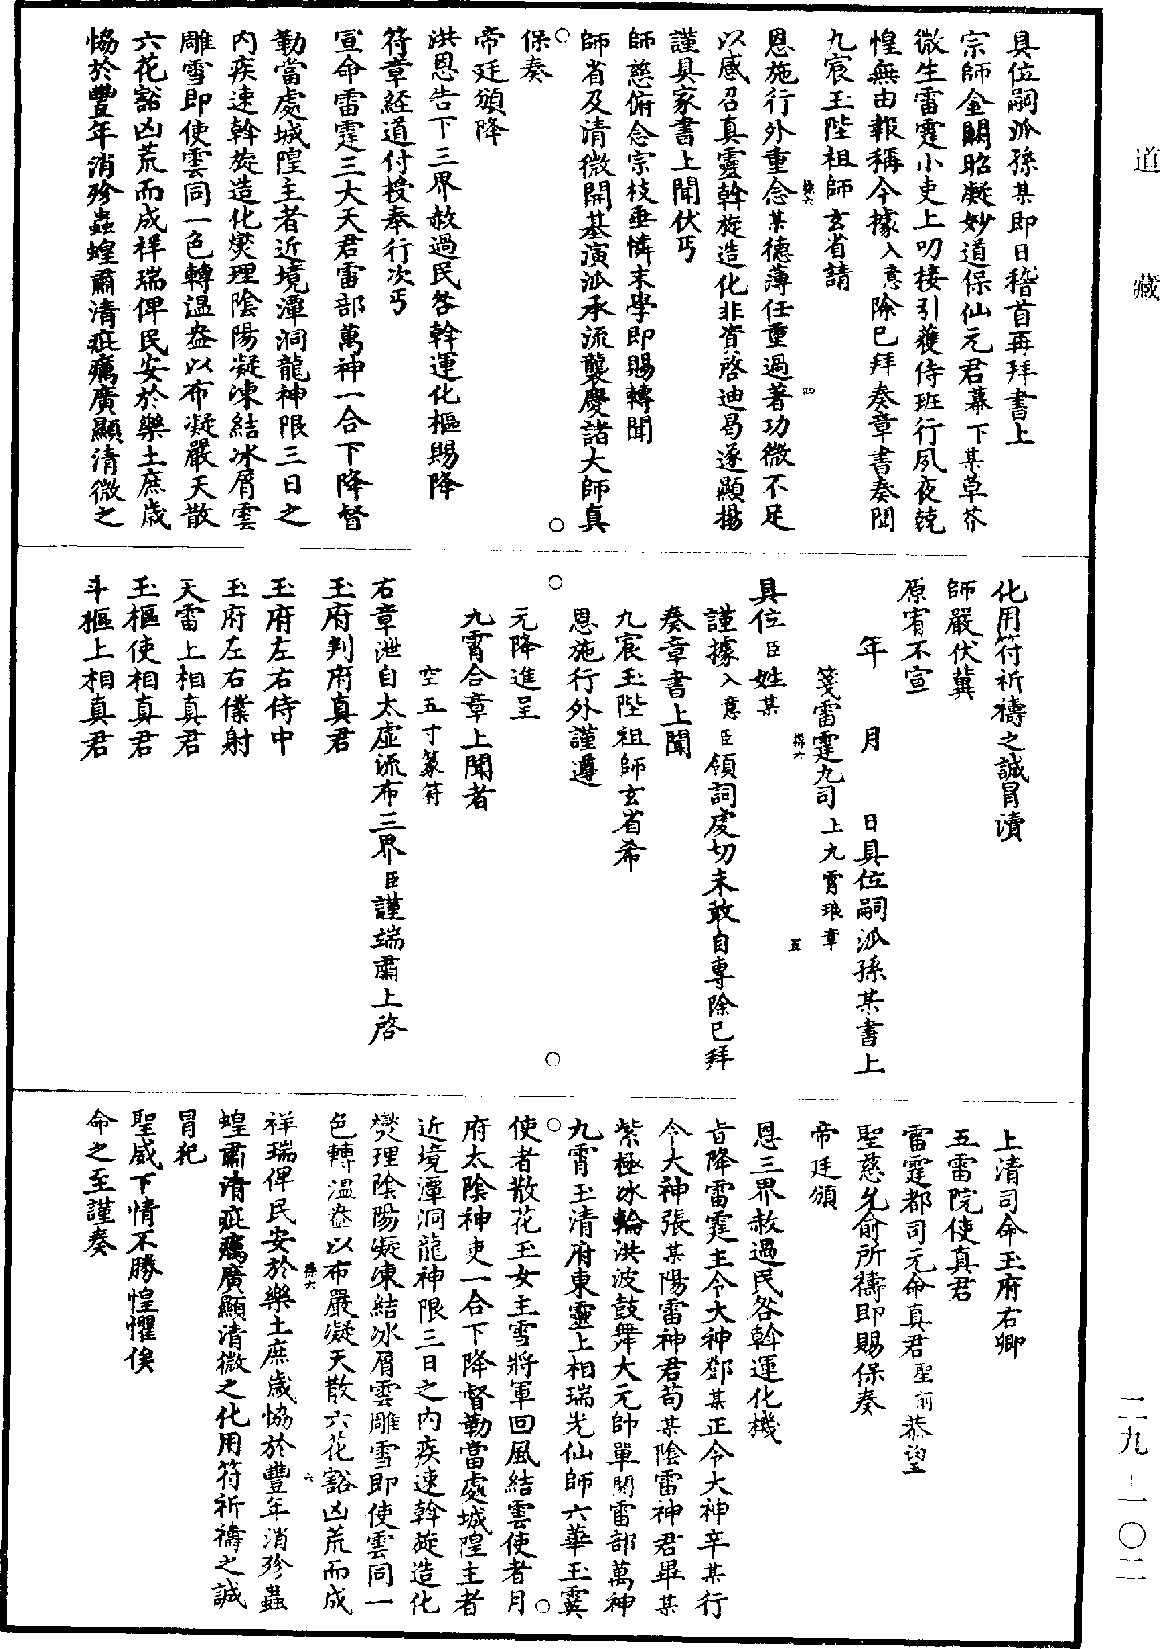 道藏
具位嗣派孫某即日稽首再拜書上
宗師金闕昭凝妙道保仙元君幕下某草芥
微生雷霆小吏上叨接引獲侍班行夙夜兢
惶無由報稱今據入意除已拜奏章書奏聞
九宸玉陛祖師玄省請
恩施行外重念某德薄任重過著功微不足
以感召真靈斡旋造化非資啓迪曷遂顯揚
謹具家書上聞伏丐
師慈俯念宗枝垂憐末學即賜轉聞
師省及清微開基演派承流襲慶諸大師真
保奏
帝廷頒降
洪恩告下三界赦過民咎斡運化樞賜降
符章經道付授奉行次丐
宣命雷霆三大天君雷部萬神一合下降督
勒當處城隍主者近境潭洞龍神限三日之
內疾速斡旋造化燮理陰陽凝凍結冰屑雲
雕雪即使雲同一色轉溫盎以布凝嚴天散
六花豁凶荒而成祥瑞俾民安於樂土庶歲
恊於豐年消殄蟲蝗肅清疵癘廣顯清微之
化用符祈禱之誠冒瀆
師嚴伏冀
原宥不宣
年 月 日具位嗣派孫某書上
箋雷霆九司上九霄琅章
具位臣姓某
謹據入意臣領詞虔切未敢自專除已拜
奏章書上聞
九宸玉陛祖師玄省希
恩施行外謹遵
元降進呈
九霄合章上聞者
空五寸篆符
右章泄自太虛流布三界臣謹端肅上啓
玉府判府真君
玉府左右侍中
玉府左右僕射
天雷上相真君
玉樞使相真君
斗樞上相真君
上清司命玉府右卿
五雷院使真君
雷霆都司元命真君聖前恭望
聖慈允俞所禱即賜保奏
帝廷頒
恩三界赦過民咎斡運化機
旨降雷霆主令大神鄧某正令大神辛某行
令大神張某陽雷神君苟某陰雷神君畢某
紫極冰輪洪波鼓舞大元帥單 雷部萬神
九霄玉清府東靈上相瑞光仙師六華玉霙
使者散花玉女主雪將軍回風結雲使者月
府太陰神吏一合下降督勒當處城隍主者
近境潭洞龍神限三日之內疾速斡旋造化
燮理陰陽凝凍結冰屑雲雕雪即使雲同一
色轉溫盎以布嚴凝天散六花豁凶荒而成
祥瑞俾民安於樂土庶歲恊於豐年消殄蟲
蝗肅清疵癘廣顯清微之化用符祈禱之誠
冒犯
聖威下情不勝惶懼俟
命之至謹奏
二九-一〇二